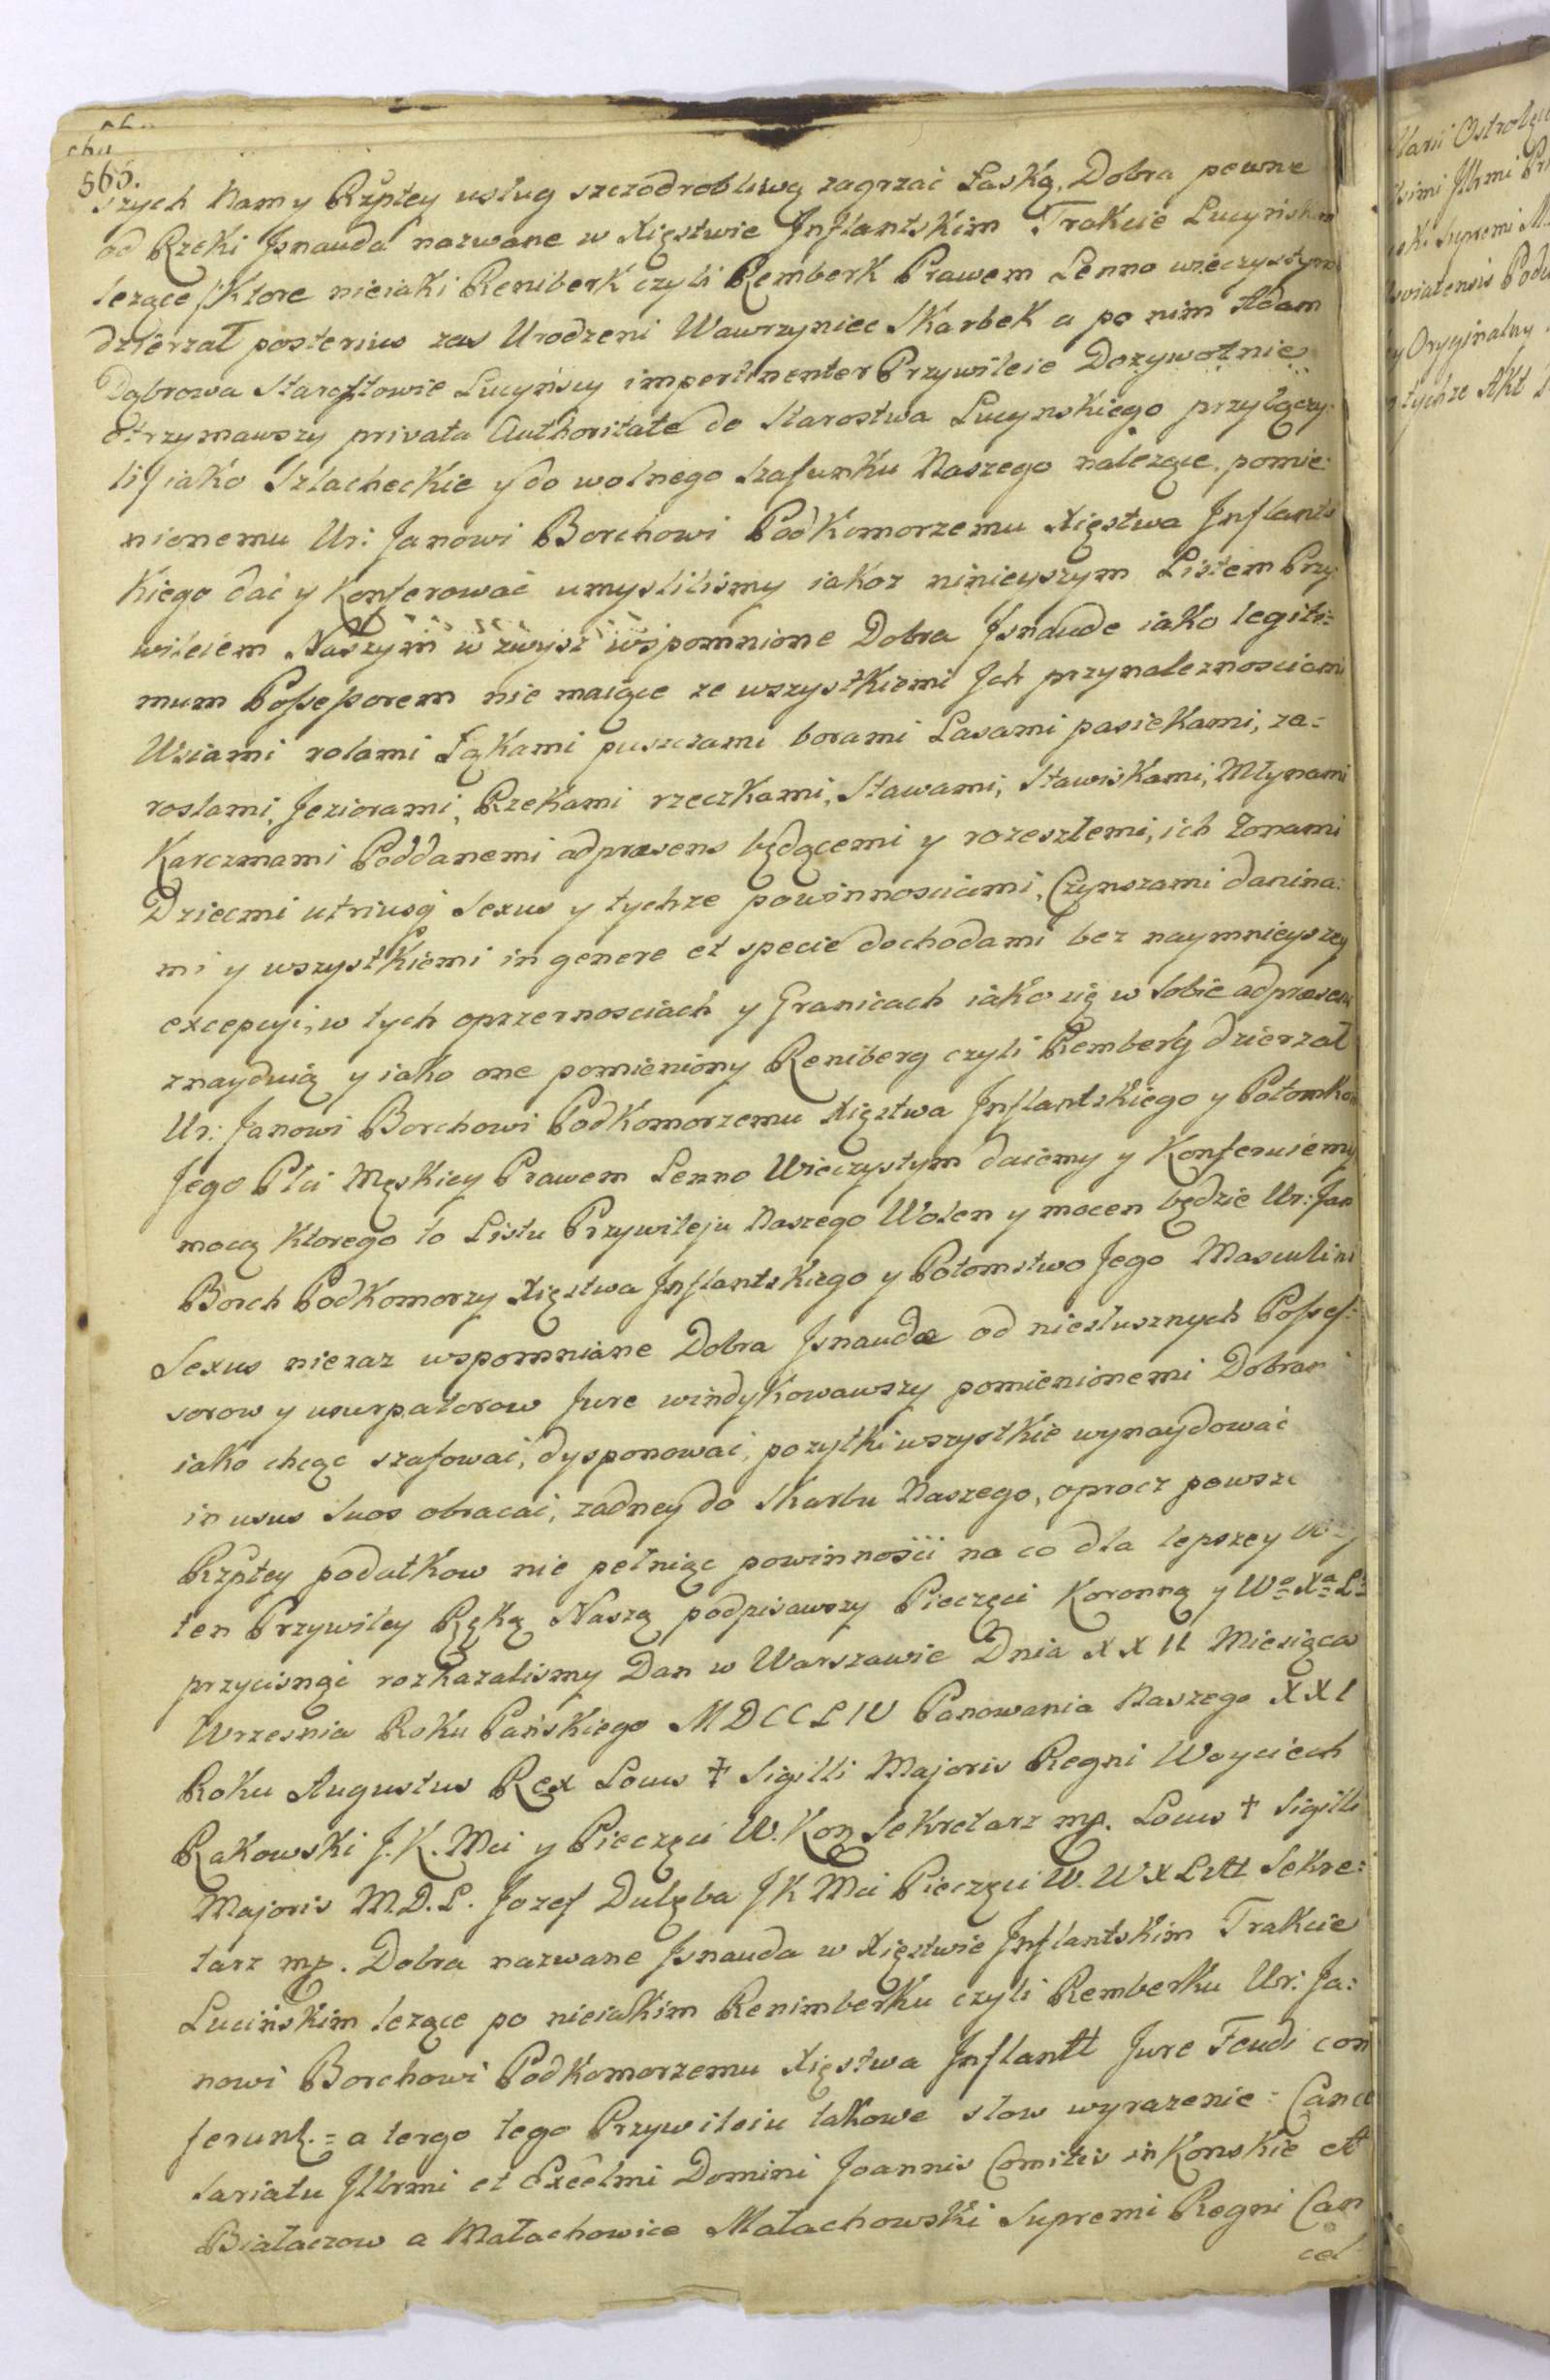 565.
szych Nam y Rzptey usług szczodrobliwą zagrzać Łaską, Dobra pewne
od Rzeki Jsnauda nazwane w Xięstwie Jnflantskim Trakcie Lucyńskim
leżące /: Ktore nieiaki Reniberk czyli Remberk Prawem Lenno wieczystym
dzierzał posterius zas Urodzeni Wawrzyniec Skarbek a po nim Adam
Dąbrowa Starostowie Lucyńscy impertinenter Przywileie Dozywotnie
otrzymawszy privata Authoritate do Starostwa Lucynskiego przyłączy:
li / iako Szlacheckie y do wolnego szafunku Naszego nalezące. pomie:
nionemu Ur: Janowi Borchowi PodKomorzemu Xięstwa Jnflants
Kiego dać y Konferować umysliliśmy iakoz ninieyszym Listem Przy
wileiem Naszym w zwysz wspomnione Dobra Jsnaude iako legiti=
mum Possessorem nie maiące ze wszystkiemi Jch przynaleznosciami
Wsiami rolami Łąkami puszczami borami Lasami pasiekami, za=
roslami, Jeziorami, Rzekami rzeczkami, Stawami, Stawiskami, Młynami
Karczmami Poddanemi adpræsens będącemi y rozeszłemi, ich Zonami
Dziecmi utriusq Sexus y tychze powinnosciami, Czynszami danina:
mi y wszystkiemi in genere et specie dochodami bez naymnieyszey
excepcyi, w tych oprzernosciach y Granicach iako się w sobie adpræsens
znayduią y iako one pomieniony Reniberg czyli Remberg dzierzał
Ur: Janowi Borchowi PodKomorzemu Xięstwa Jnflantskiego y Potomkom
Jego Płci Męskiey Prawem Lenno Wieczystym daiemy y Konferuiemy
mocą Ktorego to Listu Przywileju Naszego Wolen y mocen będzie Ur: Jan
Borch PodKomorzy Xięstwa Jnflantskiego y Potomstwo Jego Masculini
Sexus nieraz wspomniane Dobra Jsnaudæ od niesłusznych Posses:
sorow y usurpatorow Jure windykowawszy pomienionemi Dobrami
iako chcąc szafować, dysponować, pozytki wszystkie wynaydować
in usus suos obracać, zadney do Skarbu Naszego, oprocz powsze
Rzptey podatkow nie pełniąc powinności na co dla lepszey
ten Przywiley Ręką Naszą podpisawszy Pieczęci Koronną y Wo Xa Lo
przycisnąć rozkazalismy Dan w Warszawie Dnia XXII Miesiąca
Wrzesnia Roku Pańskiego MDCCLIV Panowania Naszego XXI
Roku Augustus Rex Locus † Sigilli Majoris Regni Woyciech
Rakowski J.K. Mci y Pieczęci W. Kon Sekretarz mp. Locus † Sigilli
Majoris M.D.L. Jozef Dulęba JK Mci Pieczęci W. WXLitt Sekre:
tarz mp. Dobra nazwane Jsnauda w Xięstwie Jnflantskim Trakcie
Lucińskim lezące po nieiakim Renimberku czyli Remberku Ur: Ja:
nowi Borchowi PodKomorzemu Xięstwa Jnflantt Jure Feudi con
ferunt. = a tergo tego Przywileiu takowe słow wyrazenie: Cance
lariatu Jllrmi et Excelmi Domini Joannis Comitis in Konskie et
Białaczow a Małachowice Małachowski Supremi Regni Can
cel